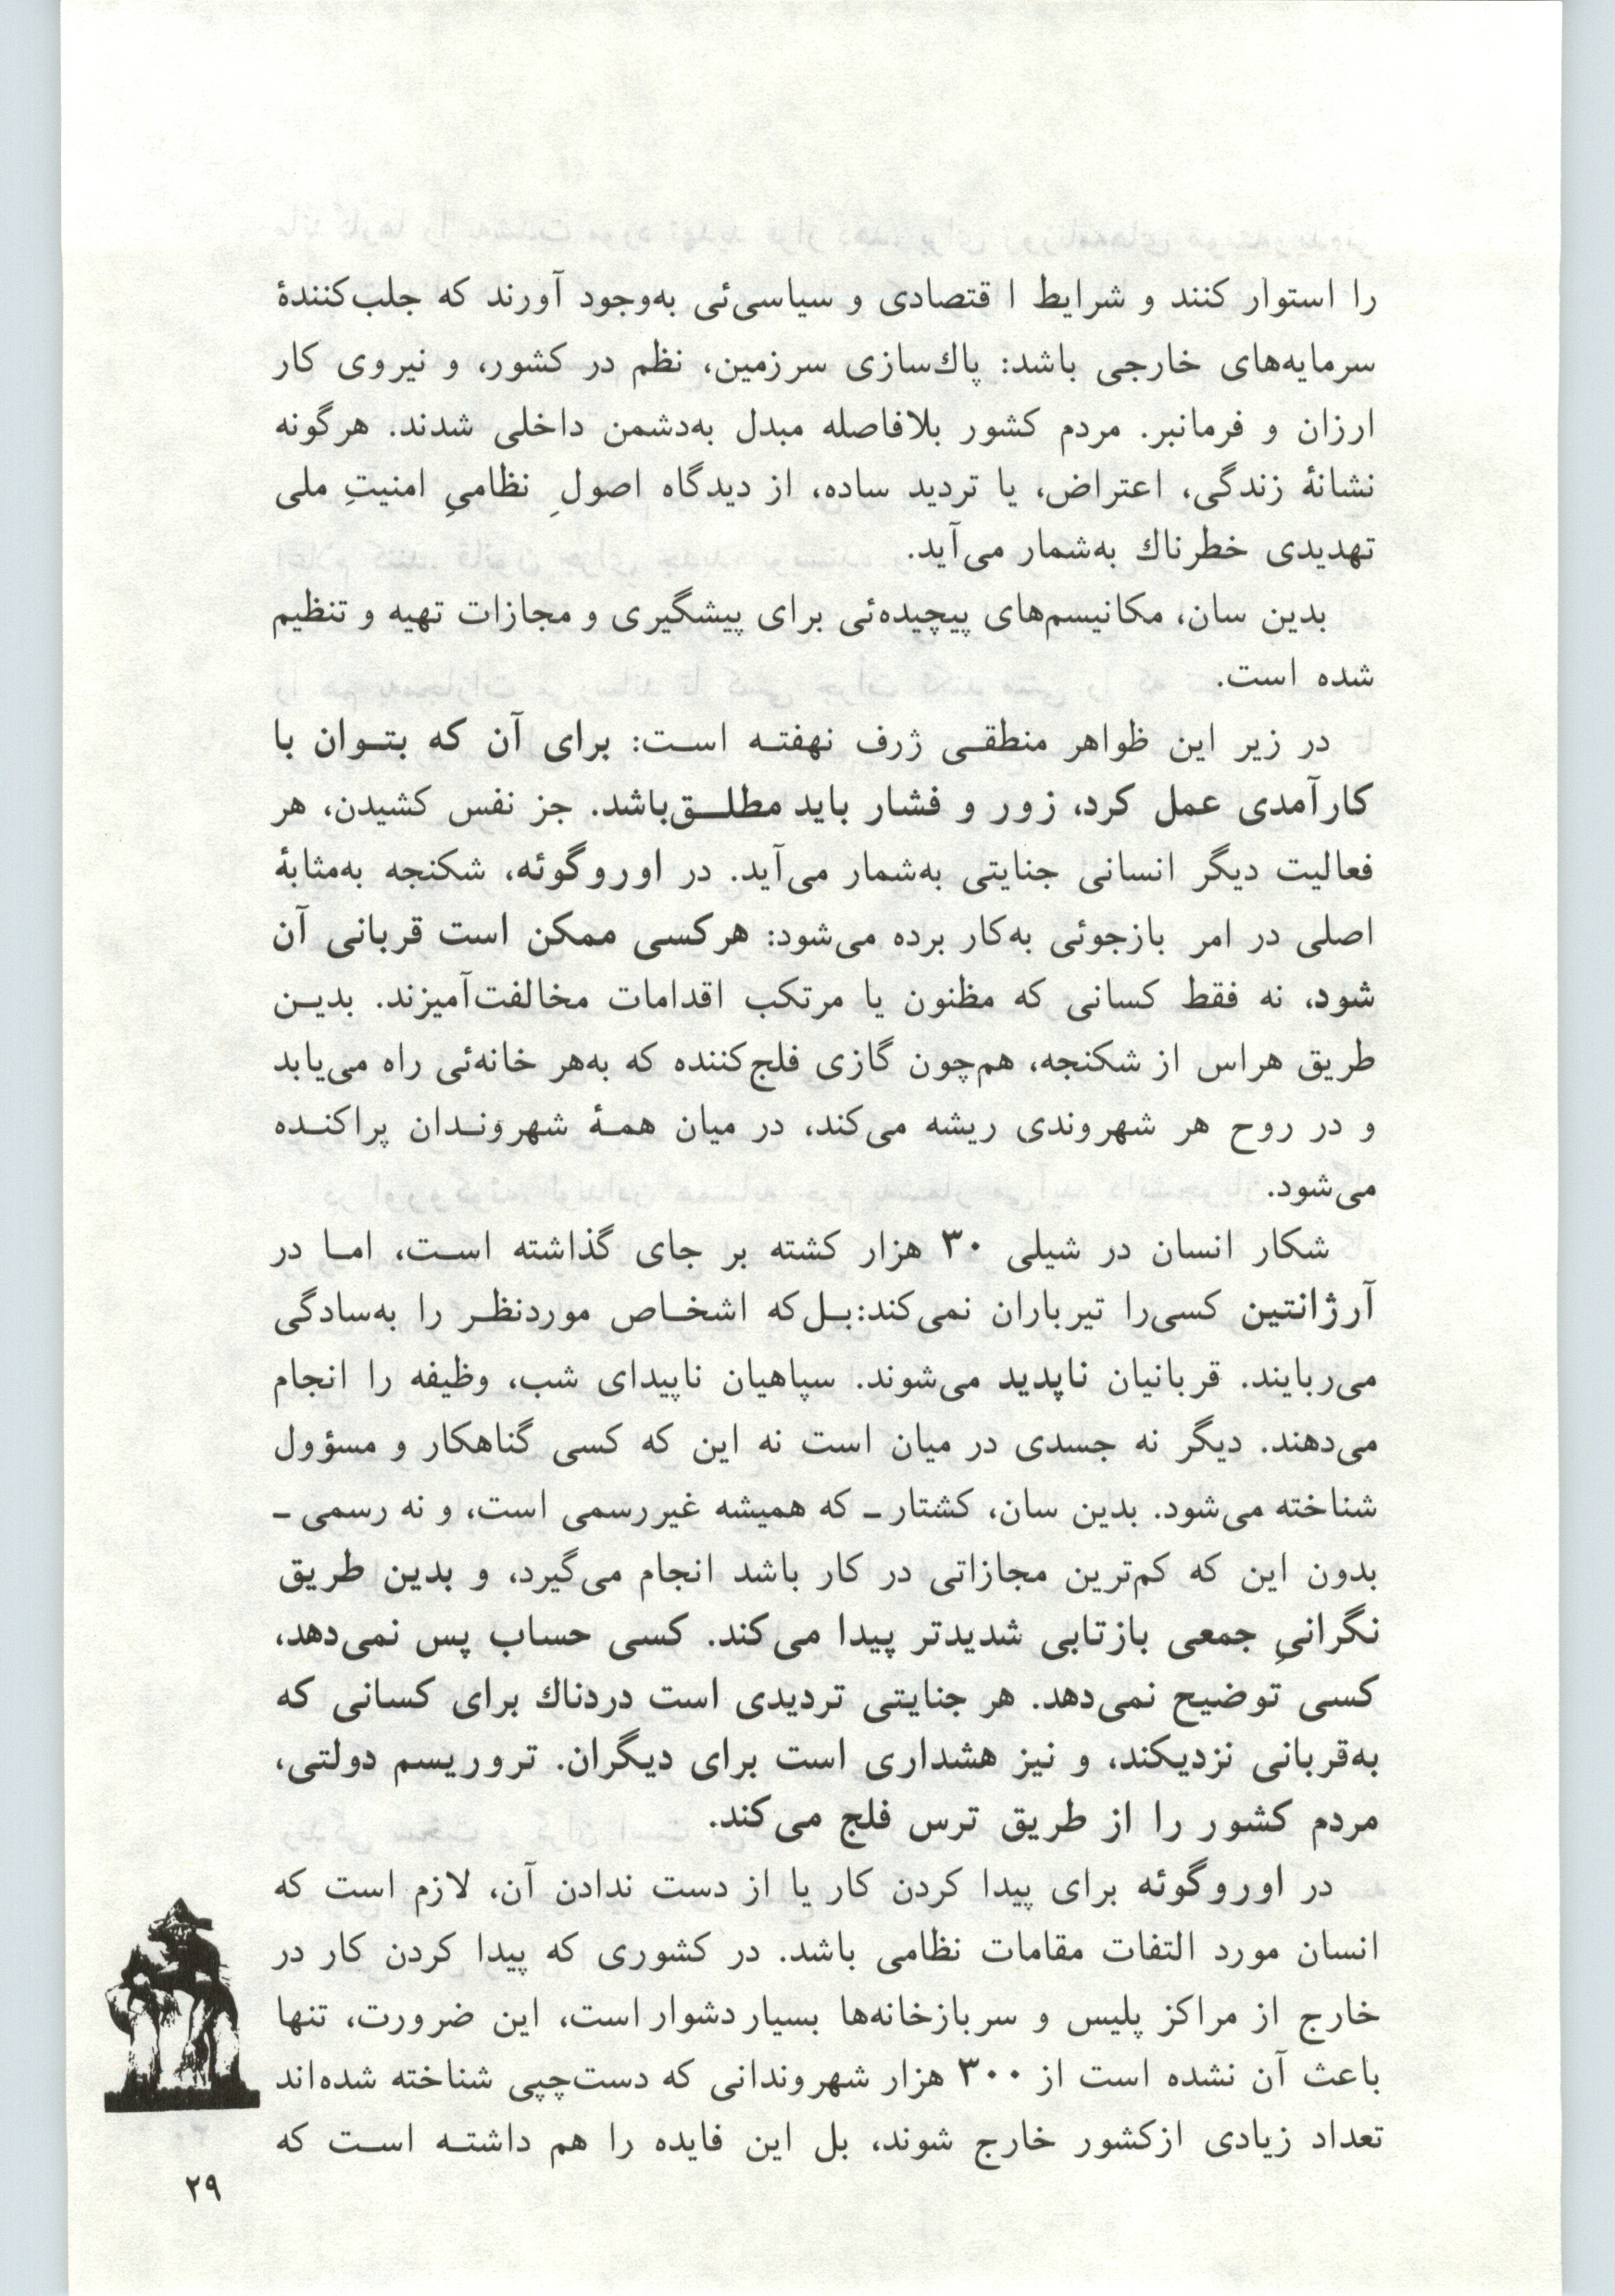 را استوار کنند و شرایط ا قتصادی و سیاسی‌ئی به‌وجود آورند که جلب‌کنندهٔ
سرمایه‌های خارجی باشد: پاك‌سازی سرزمین، نظم در کشور، و نیروی کار
ارزان و فرمانبر. مردم کشور بلافاصله مبدل به‌دشمن داخلی شدند. هرگونه
نشانهٔ زندگی، اعتراض، یا تردید ساده، از دیدگاه اصولِ نظامیِ امنیتِ ملی
تهدیدی خطرناك به‌شمار می‌آید.
بدین سان، مکانیسم‌های پیچیده‌ئی برای پیشگیری و مجازات تهیه و تنظیم
شده است.
در زیر این ظواهر منطقـی ژرف نهفتـه اسـت: برای آن که بتـوان با
کارآمدی عمل کرد، زور و فشار باید مطلـــق‌باشد. جز نفس کشیدن، هر
فعالیت دیگر انسانی جنایتی به‌شمار می‌آید. در اوروگوئه، شکنجه به‌مثابهٔ
اصلی در امر بازجوئی به‌کار برده می‌شود: هرکسی ممکن است قربانی آن
شود، نه فقط کسانی که مظنون یا مرتکب اقدامات مخالفت‌آمیزند. بدیـن
طریق هراس از شکنجه، هم‌چون گازی فلج‌کننده که به‌هر خانه‌ئی راه می‌یابد
و در روح هر شهروندی ریشه می‌کند، در میان همـهٔ شهرونـدان پراکنـده
می‌شود.
شکار انسان در شیلی ۳۰ هزار کشته بر جای گذاشته اسـت، امـا در
آرژانتین کسی‌را تیرباران نمی‌کند:بـل‌که اشخـاص موردنظـر را به‌سادگی
می‌ربایند. قربانیان ناپدید می‌شوند. سپاهیان ناپیدای شب، وظیفه را انجام
می‌دهند. دیگر نه جسدی در میان است نه این که کسی گناهکار و مسؤول
شناخته می‌شود. بدین سان، کشتار ـ که همیشه غیررسمی است، و نه رسمی ـ
بدون این که کم‌ترین مجازاتی در کار باشد انجام می‌گیرد، و بدین طریق
نگرانیِ جمعی بازتابی شدیدتر پیدا می‌کند. کسی حساب پس نمی‌دهد،
کسی توضیح نمی‌دهد. هر جنایتی تردیدی است دردناك برای کسانی که
به‌قربانی نزدیکند، و نیز هشداری است برای دیگران. تروریسم دولتی،
مردم کشور را از طریق ترس فلج می‌کند.
در اوروگوئه برای پیدا کردن کار یا از دست ندادن آن، لازم است که
انسان مورد التفات مقامات نظامی باشد. در کشوری که پیدا کردن کار در
خارج از مراکز پلیس و سربازخانه‌ها بسیار دشوار است، این ضرورت، تنها
باعث آن نشده است از ۳۰۰ هزار شهروندانی که دست‌چپی شناخته شده‌اند
تعداد زیادی ازکشور خارج شوند، بل این فایده را هم داشتـه اسـت که
۲۹